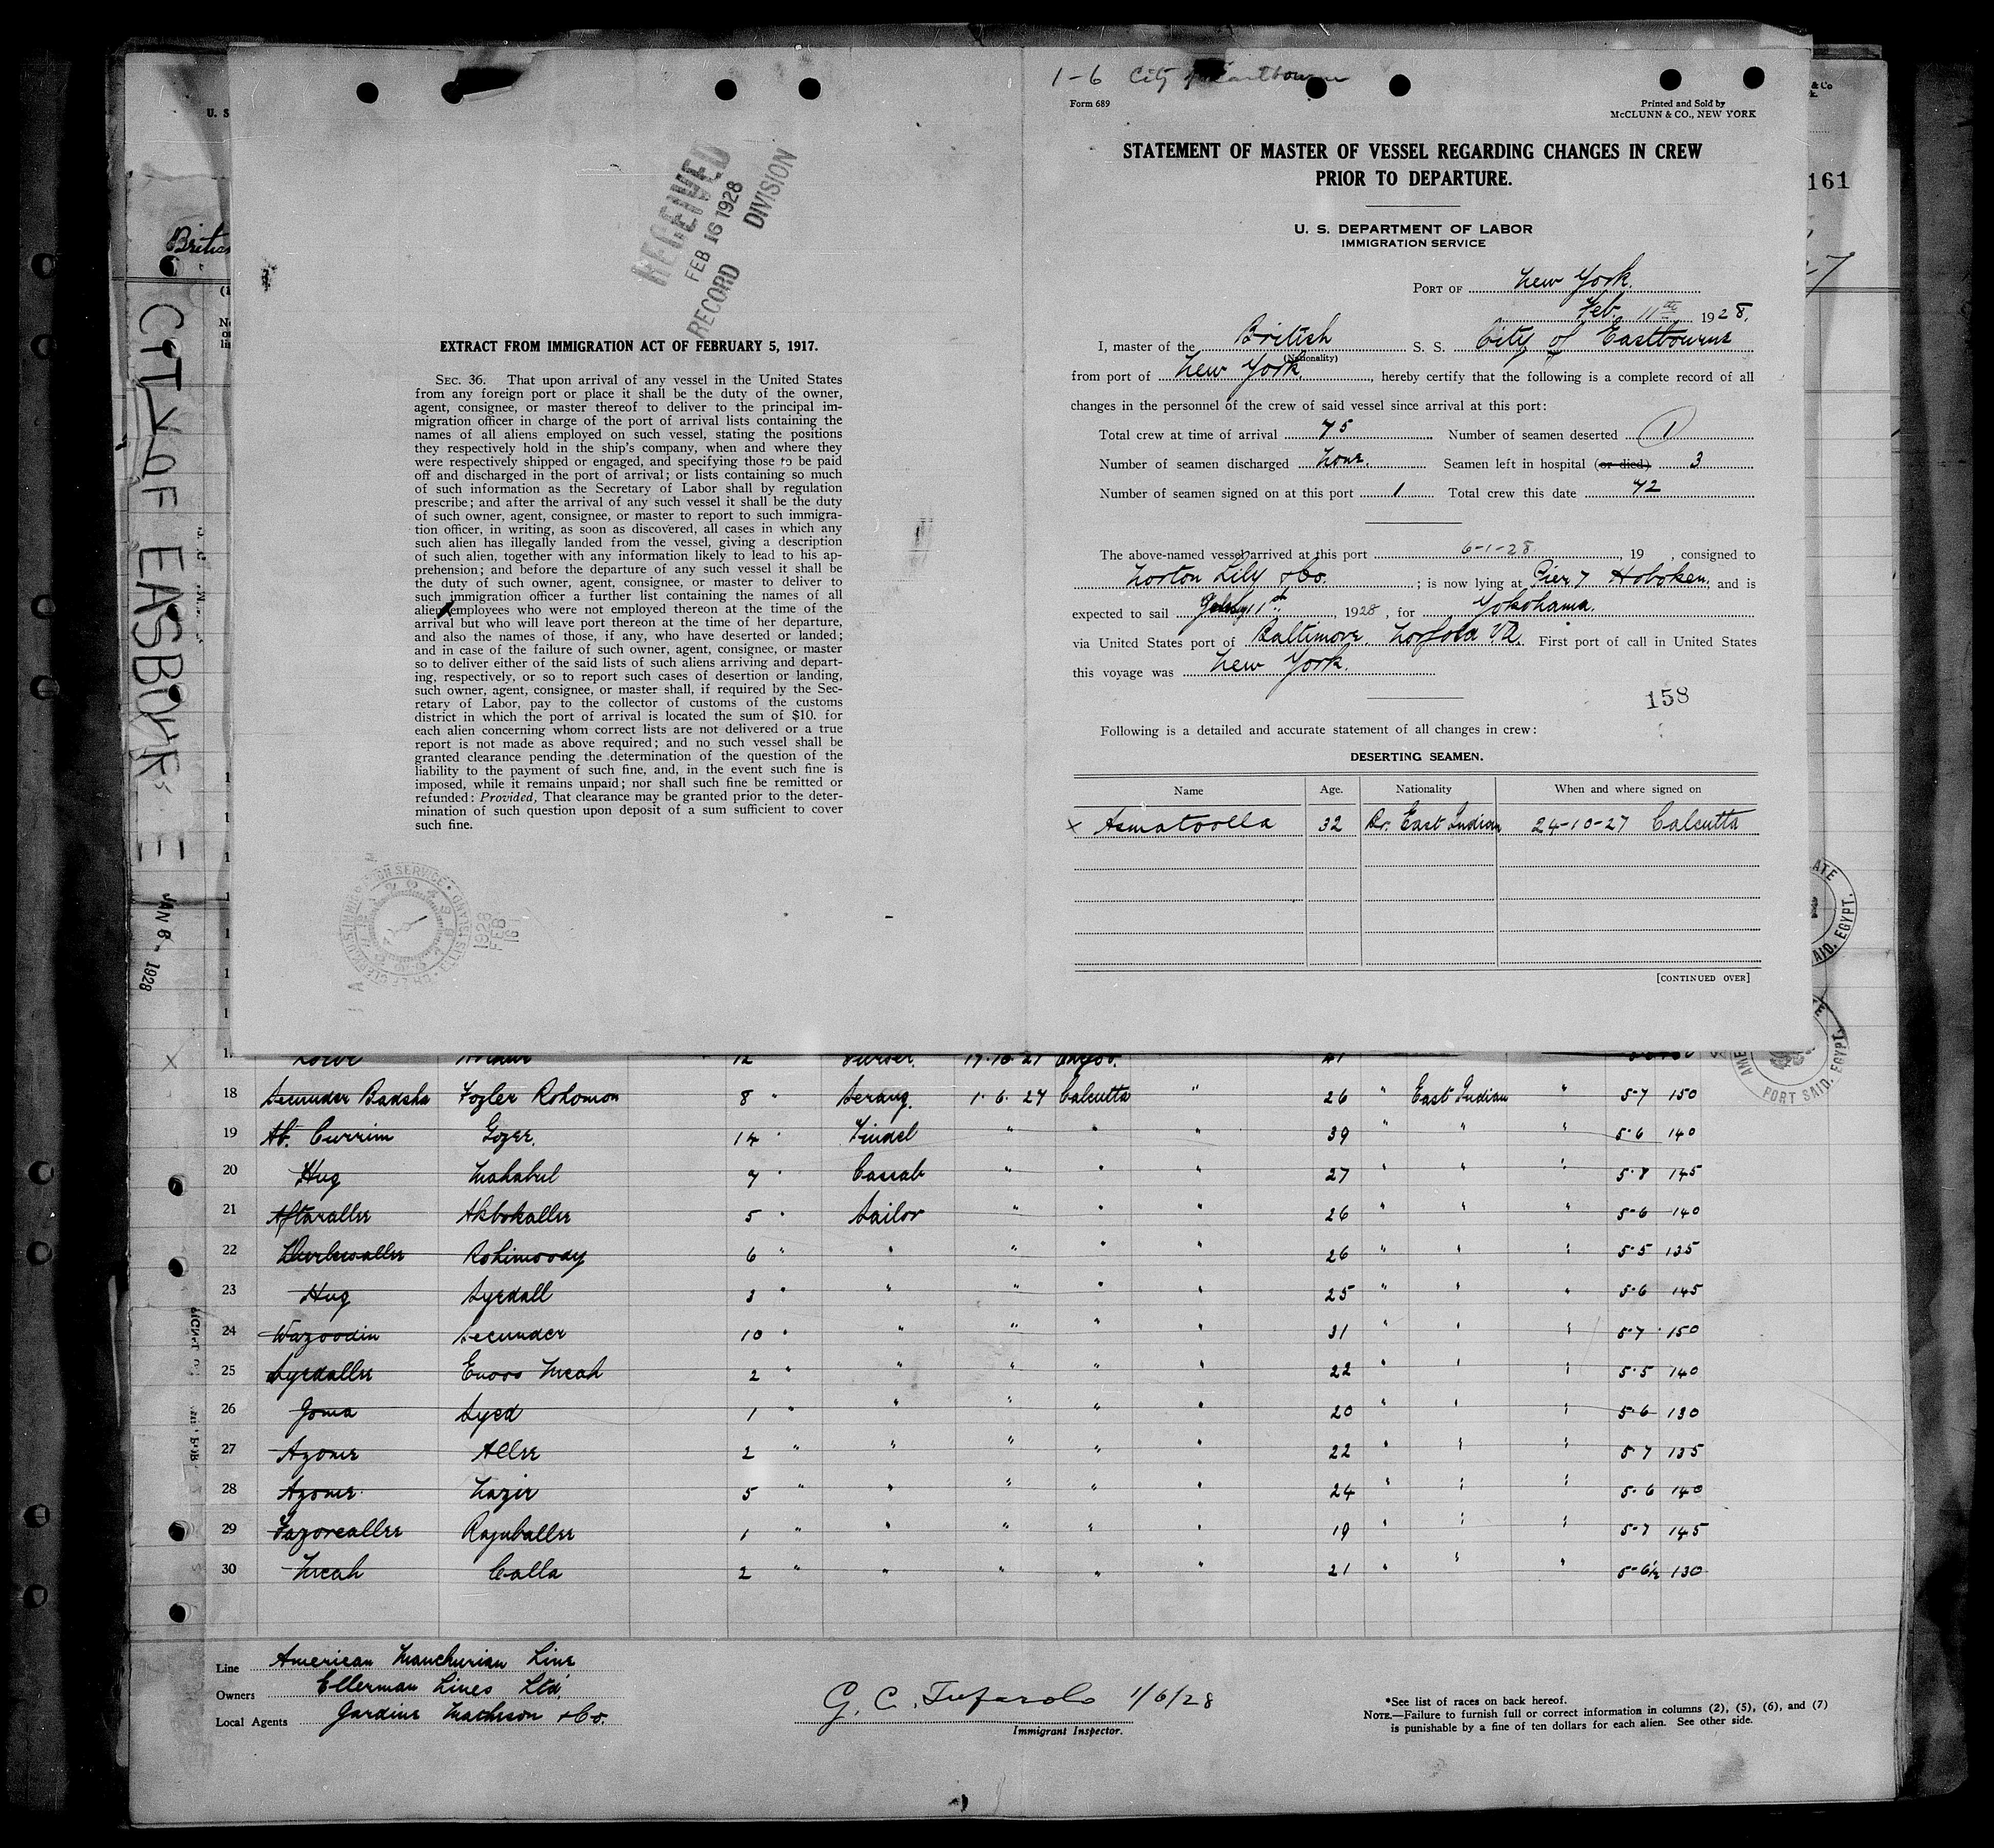 1-6 City of Eastbourne
Form 689
Printed and Sold by
McCLUNN & CO., NEW YORK
STATEMENT OF MASTER OF VESSEL REGARDING CHANGES IN CREW
PRIOR TO DEPARTURE.
U. S. DEPARTMENT OF LABOR
IMMIGRATION SERVICE
PORT OF New York.
Feb. 11th 1928.
I, master of the British S. S. City of Eastbourne
(Nationality)
from port of New York, hereby certify that the following is a complete record of all
changes in the personnel of the crew of said vessel since arrival at this port:
Total crew at time of arrival 75 Number of seamen deserted 1
Number of seamen discharged none. Seamen left in hospital (or died) 3
Number of seamen signed on at this port 1 Total crew this date 72
The above-named vessel arrived at this port 6-1-28, 19 , consigned to
Norton Lily & Co. ; is now lying at Pier 7 Hoboken, and is
expected to sail 11th, 1928, for Yokohama.
via United States port of Baltimore, Norfolk VA. First port of call in United States
this voyage was New York.
158
Following is a detailed and accurate statement of all changes in crew:
DESERTING SEAMEN.
Name Age. Nationality When and where signed on
x Asmatoolla 32 Br. East Indian 24-10-27 Calcutta
[CONTINUED OVER]
RECEIVED
FEB 16 1928
RECORD DIVISION
EXTRACT FROM IMMIGRATION ACT OF FEBRUARY 5, 1917.
SEC. 36. That upon arrival of any vessel in the United States
from any foreign port or place it shall be the duty of the owner,
agent, consignee, or master thereof to deliver to the principal im-
migration officer in charge of the port of arrival lists containing the
names of all aliens employed on such vessel, stating the positions
they respectively hold in the ship's company, when and where they
were respectively shipped or engaged, and specifying those to be paid
off and discharged in the port of arrival; or lists containing so much
of such information as the Secretary of Labor shall by regulation
prescribe; and after the arrival of any such vessel it shall be the duty
of such owner, agent, consignee, or master to report to such immigra-
tion officer, in writing, as soon as discovered, all cases in which any
such alien has illegally landed from the vessel, giving a description
of such alien, together with any information likely to lead to his ap-
prehension; and before the departure of any such vessel it shall be
the duty of such owner, agent, consignee, or master to deliver to
such immigration officer a further list containing the names of all
alien employees who were not employed thereon at the time of the
arrival but who will leave port thereon at the time of her departure,
and also the names of those, if any, who have deserted or landed;
and in case of the failure of such owner, agent, consignee, or master
so to deliver either of the said lists of such aliens arriving and depart-
ing, respectively, or so to report such cases of desertion or landing,
such owner, agent, consignee, or master shall, if required by the Sec-
retary of Labor, pay to the collector of customs of the customs
district in which the port of arrival is located the sum of $10. for
each alien concerning whom correct lists are not delivered or a true
report is not made as above required; and no such vessel shall be
granted clearance pending the determination of the question of the
liability to the payment of such fine, and, in the event such fine is
imposed, while it remains unpaid; nor shall such fine be remitted or
refunded: Provided, That clearance may be granted prior to the deter-
mination of such question upon deposit of a sum sufficient to cover
such fine.
1928 FEB 16
161
CITY OF EASBURNE
JAN 6 - 1928
PORT SAID, EGYPT.
18 Secunder Badsha Fozler Rohomon 8 " Serang. 1. 6. 27 Calcutta " 26 " East Indian " 5-7 150
19 Ab. Currim Gozee. 14 " Tindel " " " 39 " " " 5-6 140
20 Huq Mahabul 7 " Cassab " " " 27 " " " 5-8 145
21 Aftarallee Akbokallee 5 " Sailor " " " 26 " " " 5-6 140
22 Rohimoody 6 " " " " " 26 " " " 5-5 135
23 Huq Syedall 3 " " " " " 25 " " " 5-6 145
24 Wazoodin Secunder 10 " " " " " 31 " " " 5-7 150
25 Syedallee Enoos Meah 2 " " " " " 22 " " " 5-5 140
26 Goma Syed 1 " " " " " 20 " " " 5-6 130
27 Azome Allee 2 " " " " " 22 " " " 5-7 135
28 Azome Nazir 5 " " " " " 24 " " " 5-6 140
29 Fazoreallee Rajuballee 1 " " " " " 19 " " " 5-7 145
30 Meah Calla 2 " " " " " 21 " " " 5-6½ 130
Line American Manchurian Line
Owners Ellerman Lines Ltd.
Local Agents Jardine Matheson & Co.
G. C. Tufarolo 1/6/28
Immigrant Inspector.
*See list of races on back hereof.
NOTE.—Failure to furnish full or correct information in columns (2), (5), (6), and (7)
is punishable by a fine of ten dollars for each alien. See other side.